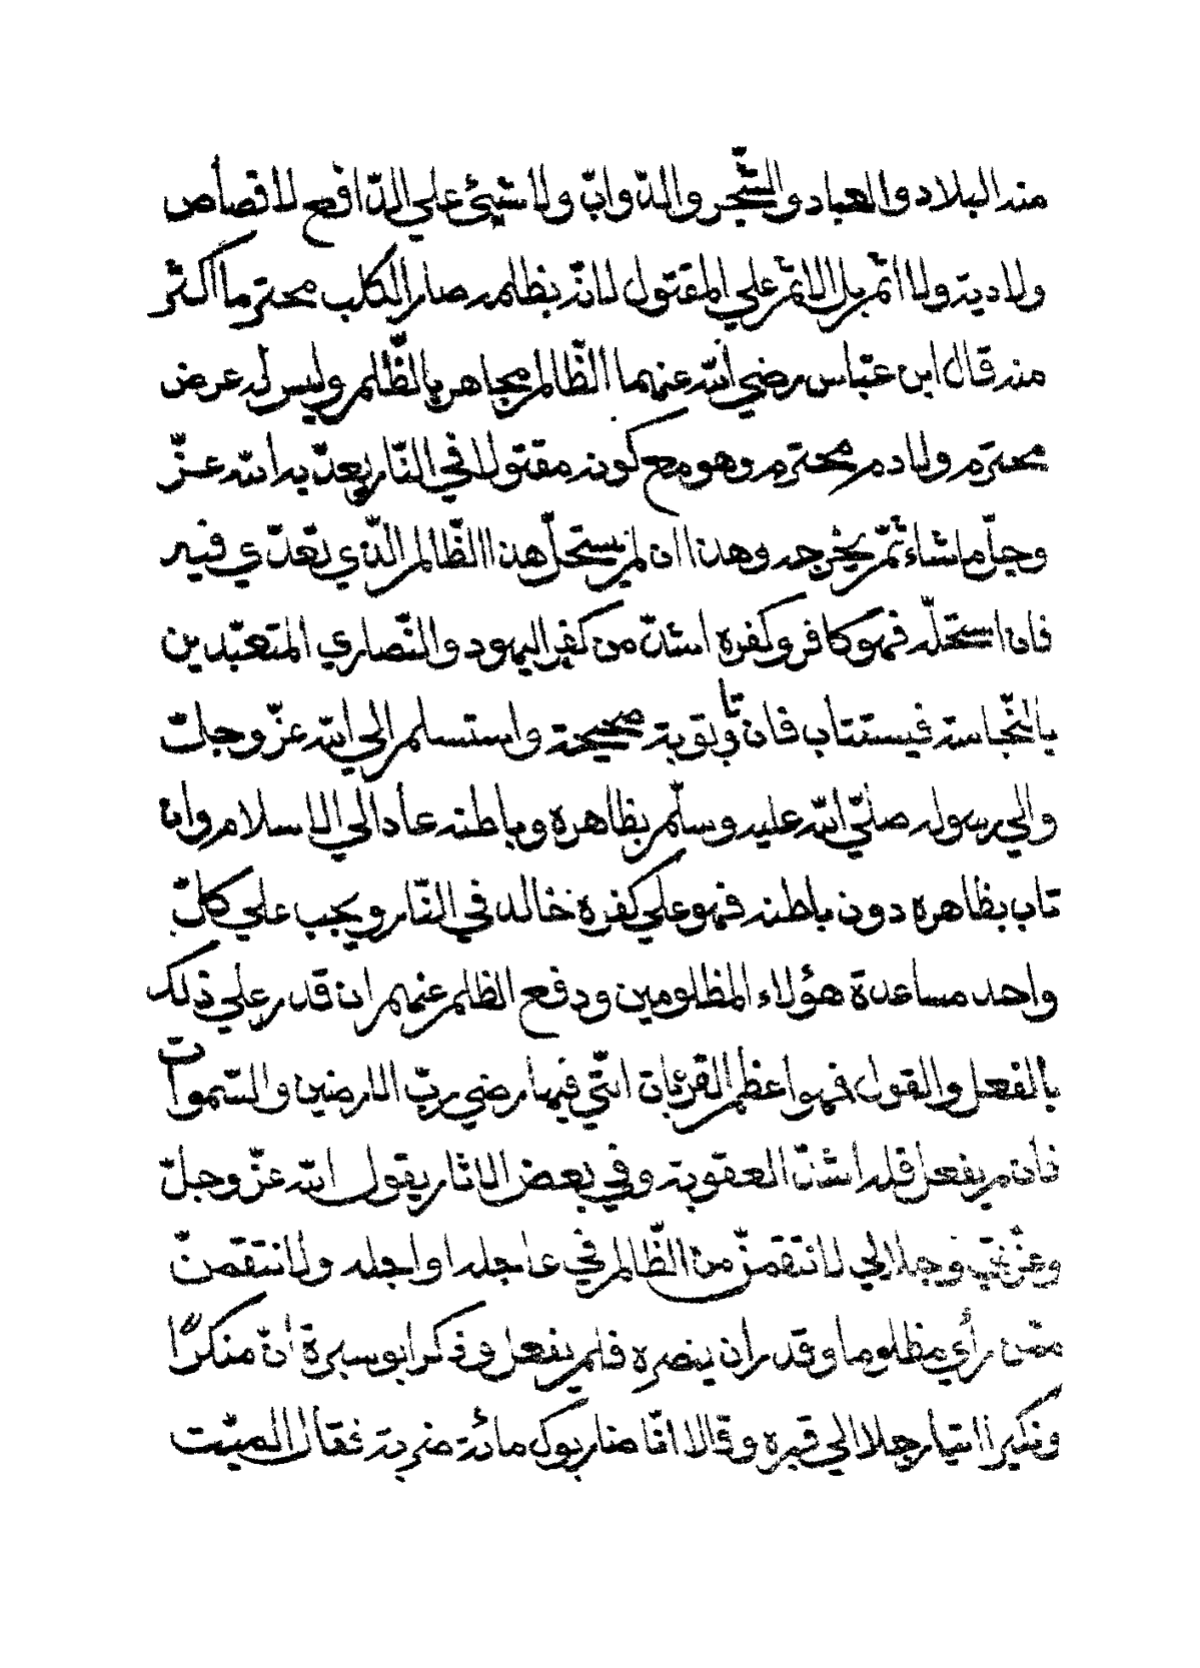 منه البلاد والعباد والشّجر والدّوابّ ولا شيئ علي الدّافع لا قصاص
ولا دية ولا اثم بل الاثم علي المقتول لانّه بظلمه صار الكلب محترما اكثر
منه قال ابن عبّاس رضي الله عنهما الظّالم مجاهر بالظّلم وليس له عرض
محترم ولا دم محترم وهو مع كونه مقتولا في النّار يعذّبه الله عزّ
وجلّ ما شاء ثمّ يخرجه وهذا ان لم يستحلّ هذا الظّالم الّذي تعدّي فيه
فان استحلّه فهو كافر وكفره اشدّ من كفر اليهود والنّصاري المتعبّدين
بالنّجاسة فيستتاب فان تاب توبة صحيحة واستسلم الي الله عزّ وجلّ
والي رسوله صلّي الله عليه وسلّم بظاهره وباطنه عاد الي الاسلام وان
تاب بظاهره دون باطنه فهو علي كفره خالد في النّار ويجب علي كلّ
واحد مساعدة هؤلاء المظلومين ودفع الظلم عنهم ان قدر علي ذلك
بالفعل والقول فهو اعظم القربات التّي فيها رضي ربّ الارضين والسّموات
فان لم يفعل فله اشدّ العقوبة وفي بعض الاثار يقول الله عزّ وجلّ
وعزّتي وجلالي لانتقمنّ من الظّالم في عاجله او اجله ولانتقمنّ
ممّن رأي مظلوما وقدر ان ينصره فلم يفعل وذكر ابو سبرة انّ منكرًا
ونكيرا اتيا رجلا الي قبره وقالا انّا ضاربوك مائة ضربة فقال الميّت